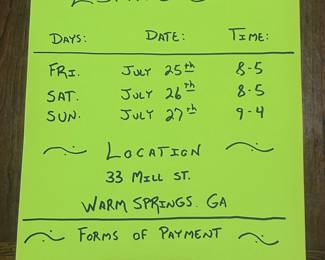 DAYS: DATE: TIME:
FRI. JULY 25th 8-5
SAT. JULY 26th 8-5
SUN. JULY 27th 9-4
LOCATION
33 MILL ST.
WARM SPRINGS. GA
FORMS OF PAYMENT